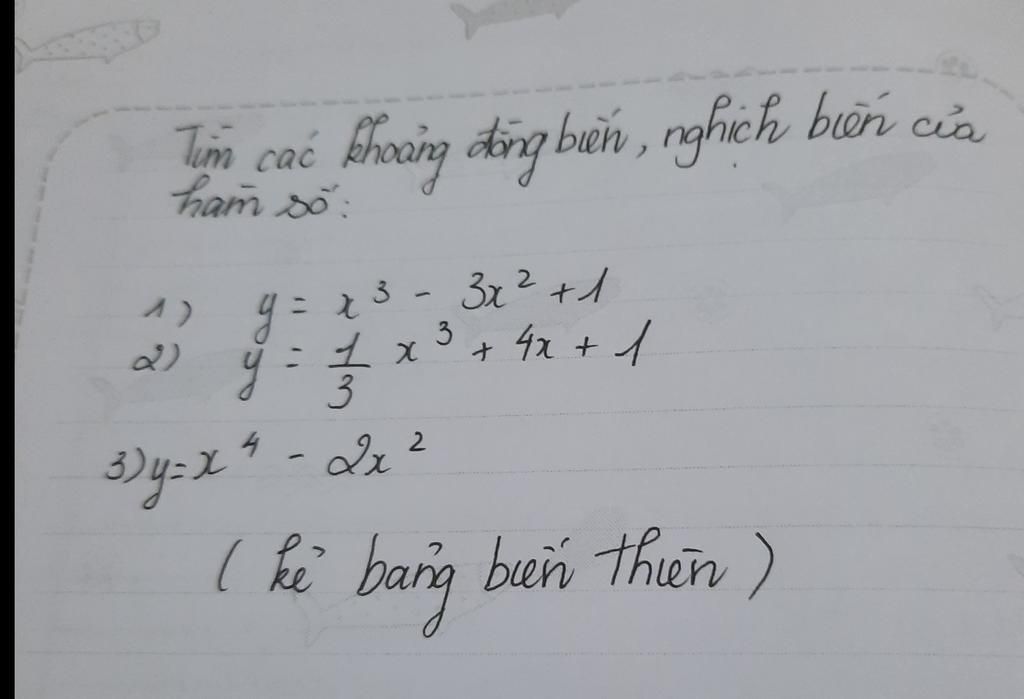 Tìm các khoảng đồng biến, nghịch biến của
hàm số:
1) y = x³ - 3x² + 1
2) y = 1/3 x³ + 4x + 1
3) y = x⁴ - 2x²
(kẻ bảng biến thiên)